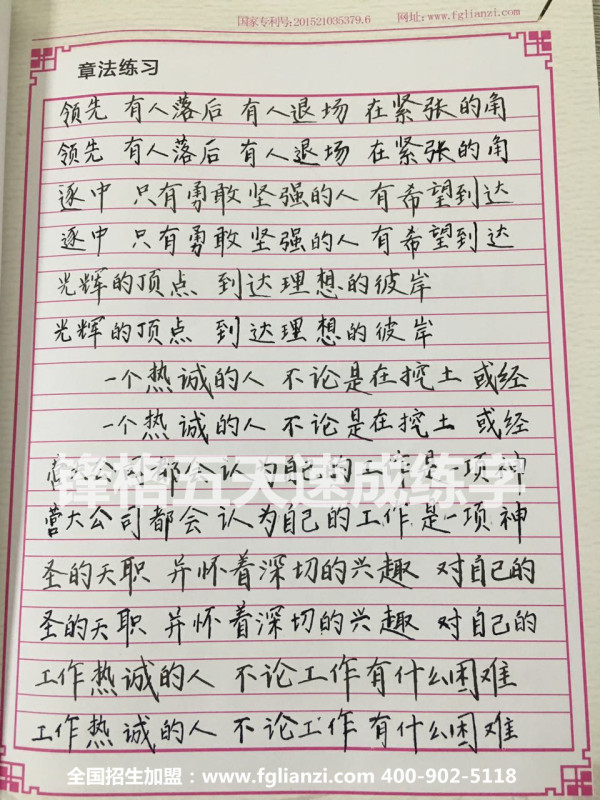 国家专利号:201521035379.6 网址:www.fglianzi.com
章法练习
领先 有人落后 有人退场 在紧张的角
领先 有人落后 有人退场 在紧张的角
逐中 只有勇敢坚强的人 有希望到达
逐中 只有勇敢坚强的人 有希望到达
光辉的顶点 到达理想的彼岸
光辉的顶点 到达理想的彼岸
一个热诚的人 不论是在挖土 或经
一个热诚的人 不论是在挖土 或经
营大公司都会认为自己的工作是一项神
锋格五天速成练字
营大公司都会认为自己的工作是一项神
圣的天职 并怀着深切的兴趣 对自己的
圣的天职 并怀着深切的兴趣 对自己的
工作热诚的人 不论工作有什么困难
工作热诚的人 不论工作有什么困难
全国招生加盟：www.fglianzi.com 400-902-5118